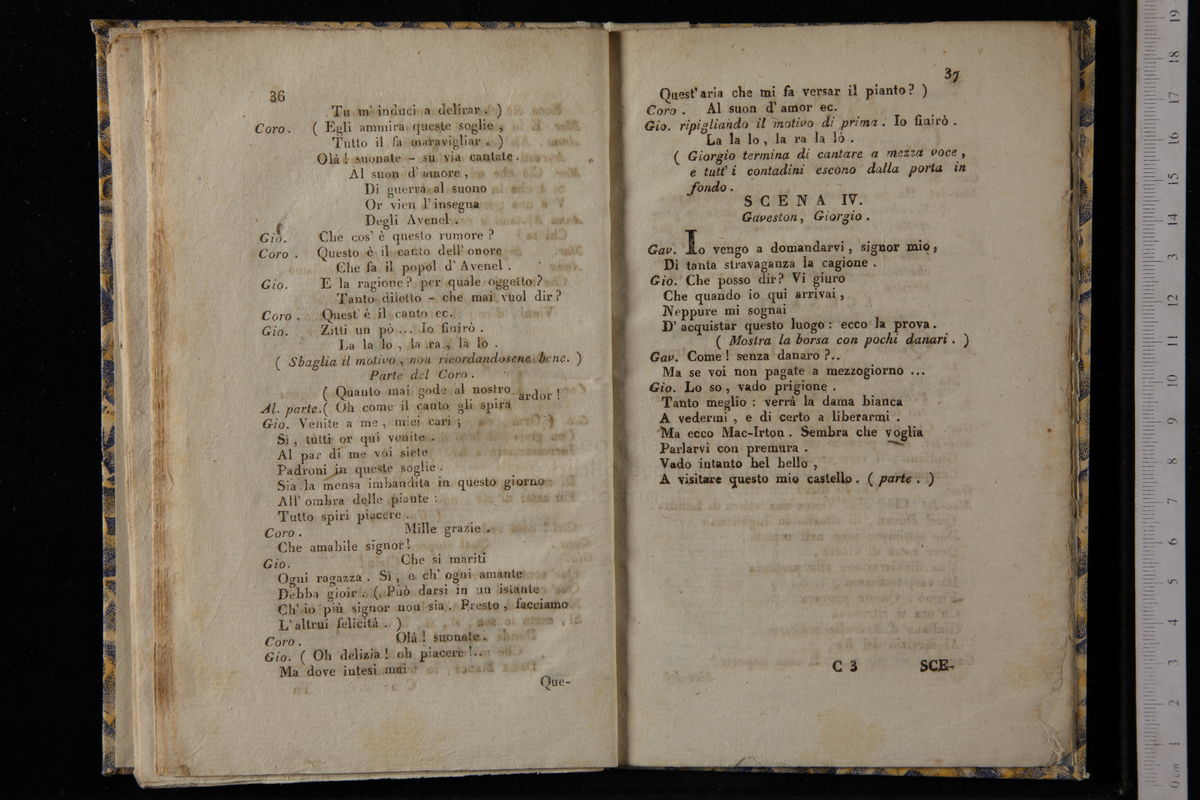 36
Tu m' induci a delirar . )
Coro . ( Egli ammira queste soglie ,
Tutto il fa maravigliar . )
Olà ! suonate - su via cantate .
Al suon d' amore ,
Di guerra al suono
Or vien l' insegna
Degli Avenel .
Gio. Che cos' è questo rumore ?
Coro . Questo è il canto dell' onore
Che fa il popol d' Avenel .
Gio. E la ragione ? per quale oggetto ?
Tanto diletto - che mai vuol dir ?
Coro . Quest' è il canto ec.
Gio. Zitti un pò ... Io finirò .
La la lo , la ra , la lo .
( Sbaglia il motivo , non ricordandosene bene. )
Parte del Coro .
( Quanto mai gode al nostro ardor !
Al. parte.( Oh come il canto gli spira
Gio. Venite a me , miei cari ;
Sì , tutti or qui venite .
Al par di me voi siete
Padroni in queste soglie .
Sia la mensa imbandita in questo giorno
All' ombra delle piante :
Tutto spiri piacere .
Coro . Mille grazie .
Che amabile signor !
Gio. Che si mariti
Ogni ragazza . Sì , e ch' ogni amante
Debba gioir . ( Può darsi in un istante
Ch' io più signor non sia . Presto , facciamo
L' altrui felicità . )
Coro . Olà ! suonate .
Gio. ( Oh delizia ! oh piacere !..
Ma dove intesi mai
Que-
37
Quest' aria che mi fa versar il pianto ? )
Coro . Al suon d' amor ec.
Gio. ripigliando il motivo di prima . Io finirò .
La la lo , la ra la lò .
( Giorgio termina di cantare a mezza voce ,
e tutt' i contadini escono dalla porta in
fondo .
SCENA IV.
Gaveston, Giorgio .
Gav. Io vengo a domandarvi , signor mio ,
Di tanta stravaganza la cagione .
Gio. Che posso dir ? Vi giuro
Che quando io qui arrivai ,
Neppure mi sognai
D' acquistar questo luogo : ecco la prova .
( Mostra la borsa con pochi danari . )
Gav. Come ! senza danaro ?..
Ma se voi non pagate a mezzogiorno ...
Gio. Lo so , vado prigione .
Tanto meglio : verrà la dama bianca
A vedermi , e di certo a liberarmi .
Ma ecco Mac-Irton . Sembra che voglia
Parlarvi con premura .
Vado intanto bel bello ,
A visitare questo mio castello . ( parte . )
C 3 SCE-